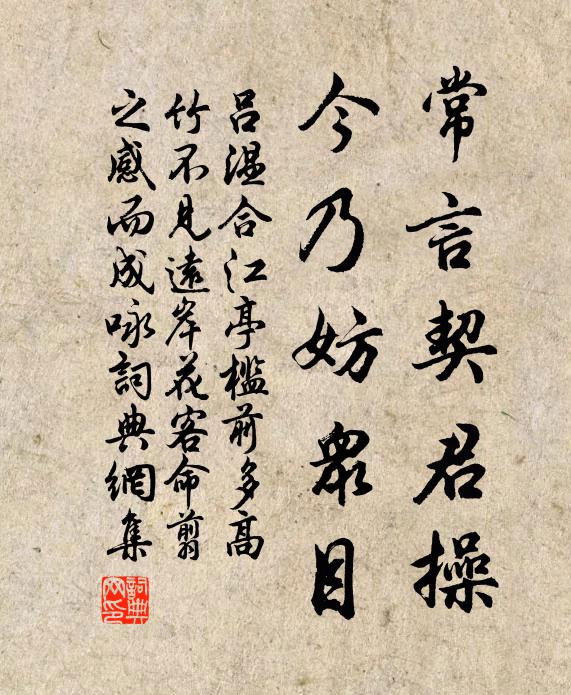 常言契君操
今乃妨衆目
吕温合江亭檻前多高
竹不見遠岸花客命翦
之感而成咏詞典網集
詞典
网印